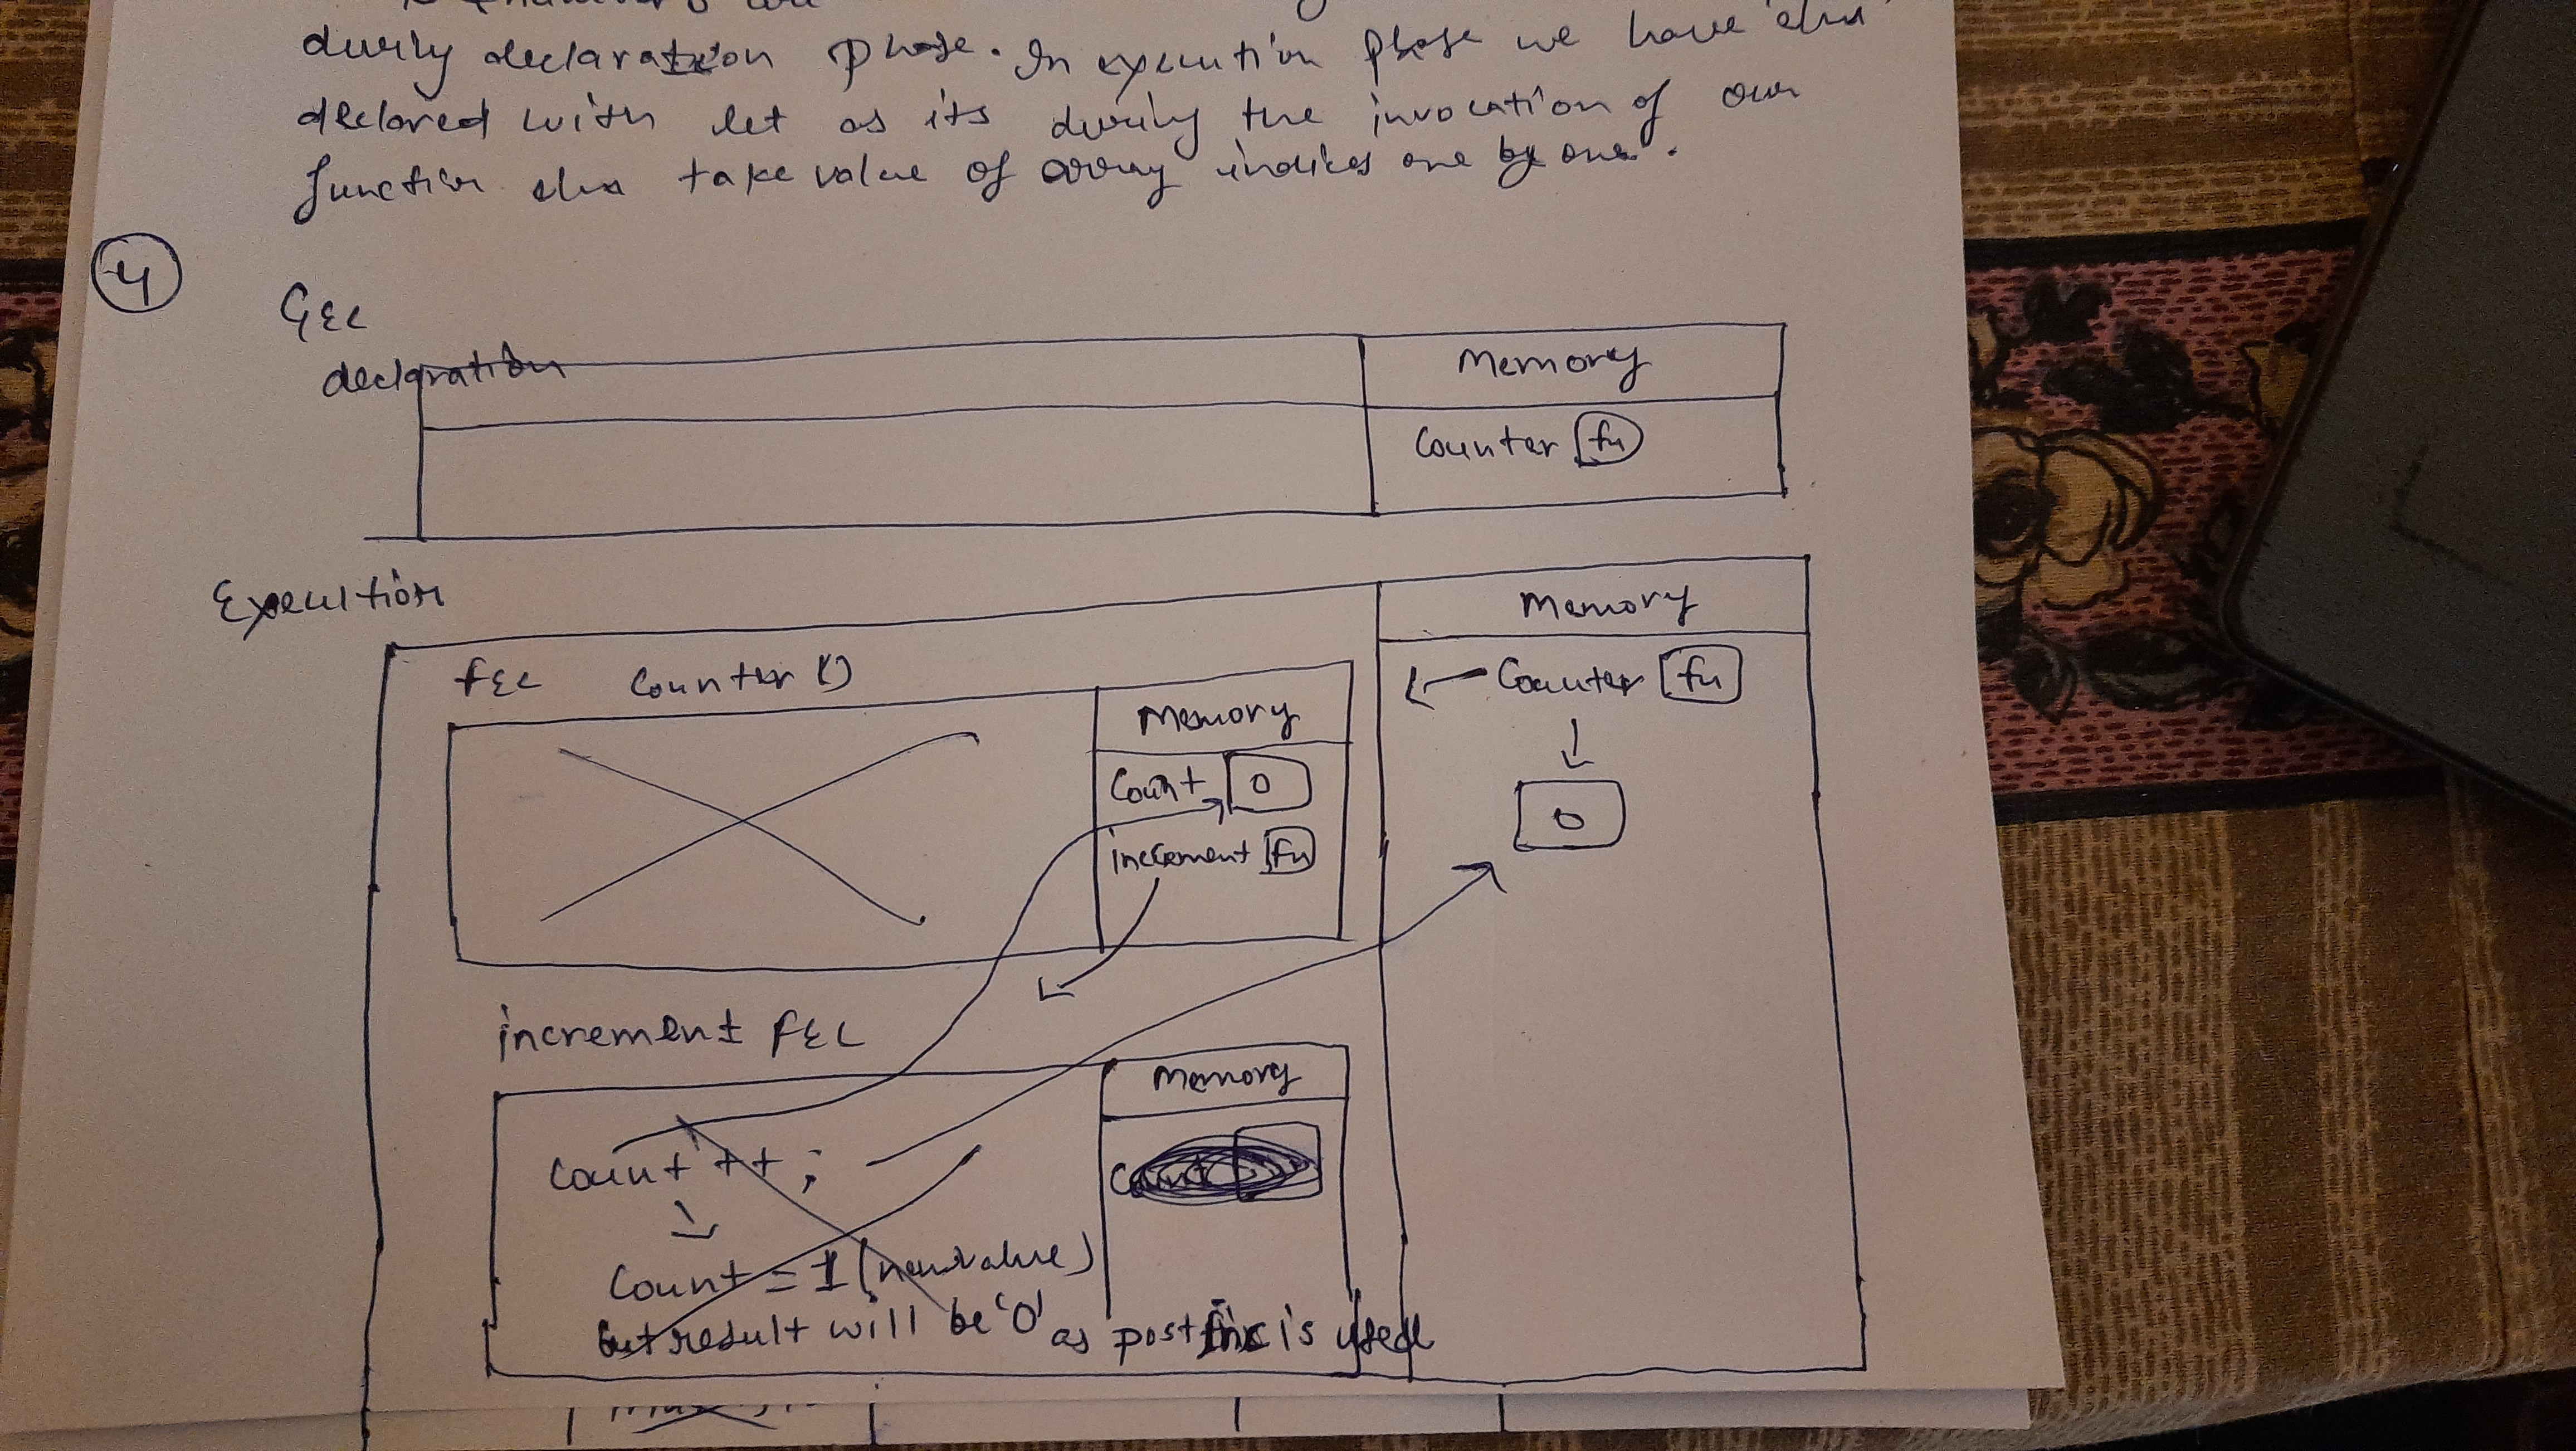 during declaration phase. In execution phase we have also
declared with let as its during the invocation of our
function also take value of array indices one by one.
4
GEC
declaration
Memory
Counter fn
Execution
Memory
FEC Counter ()
Memory
Counter fn
Count 0
Increment fn
0
increment FEC
Memory
Count ++;
Count = 1 (new value)
but result will be '0' as postfix is used